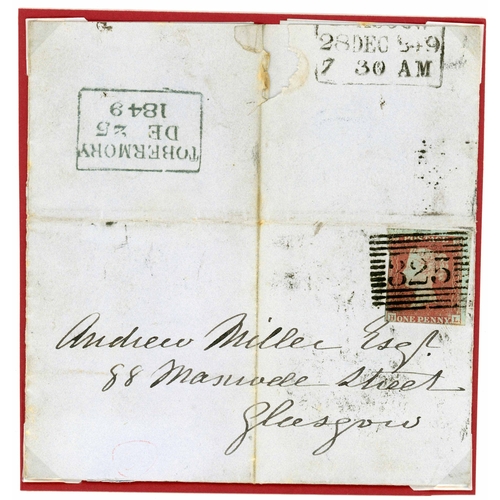 28 DEC 1849
7 30 AM
TOBERMORY
DE 25
1849
325
ONE PENNY
L
Andrew Miller Esqr
88 Maxwell Street
Glasgow